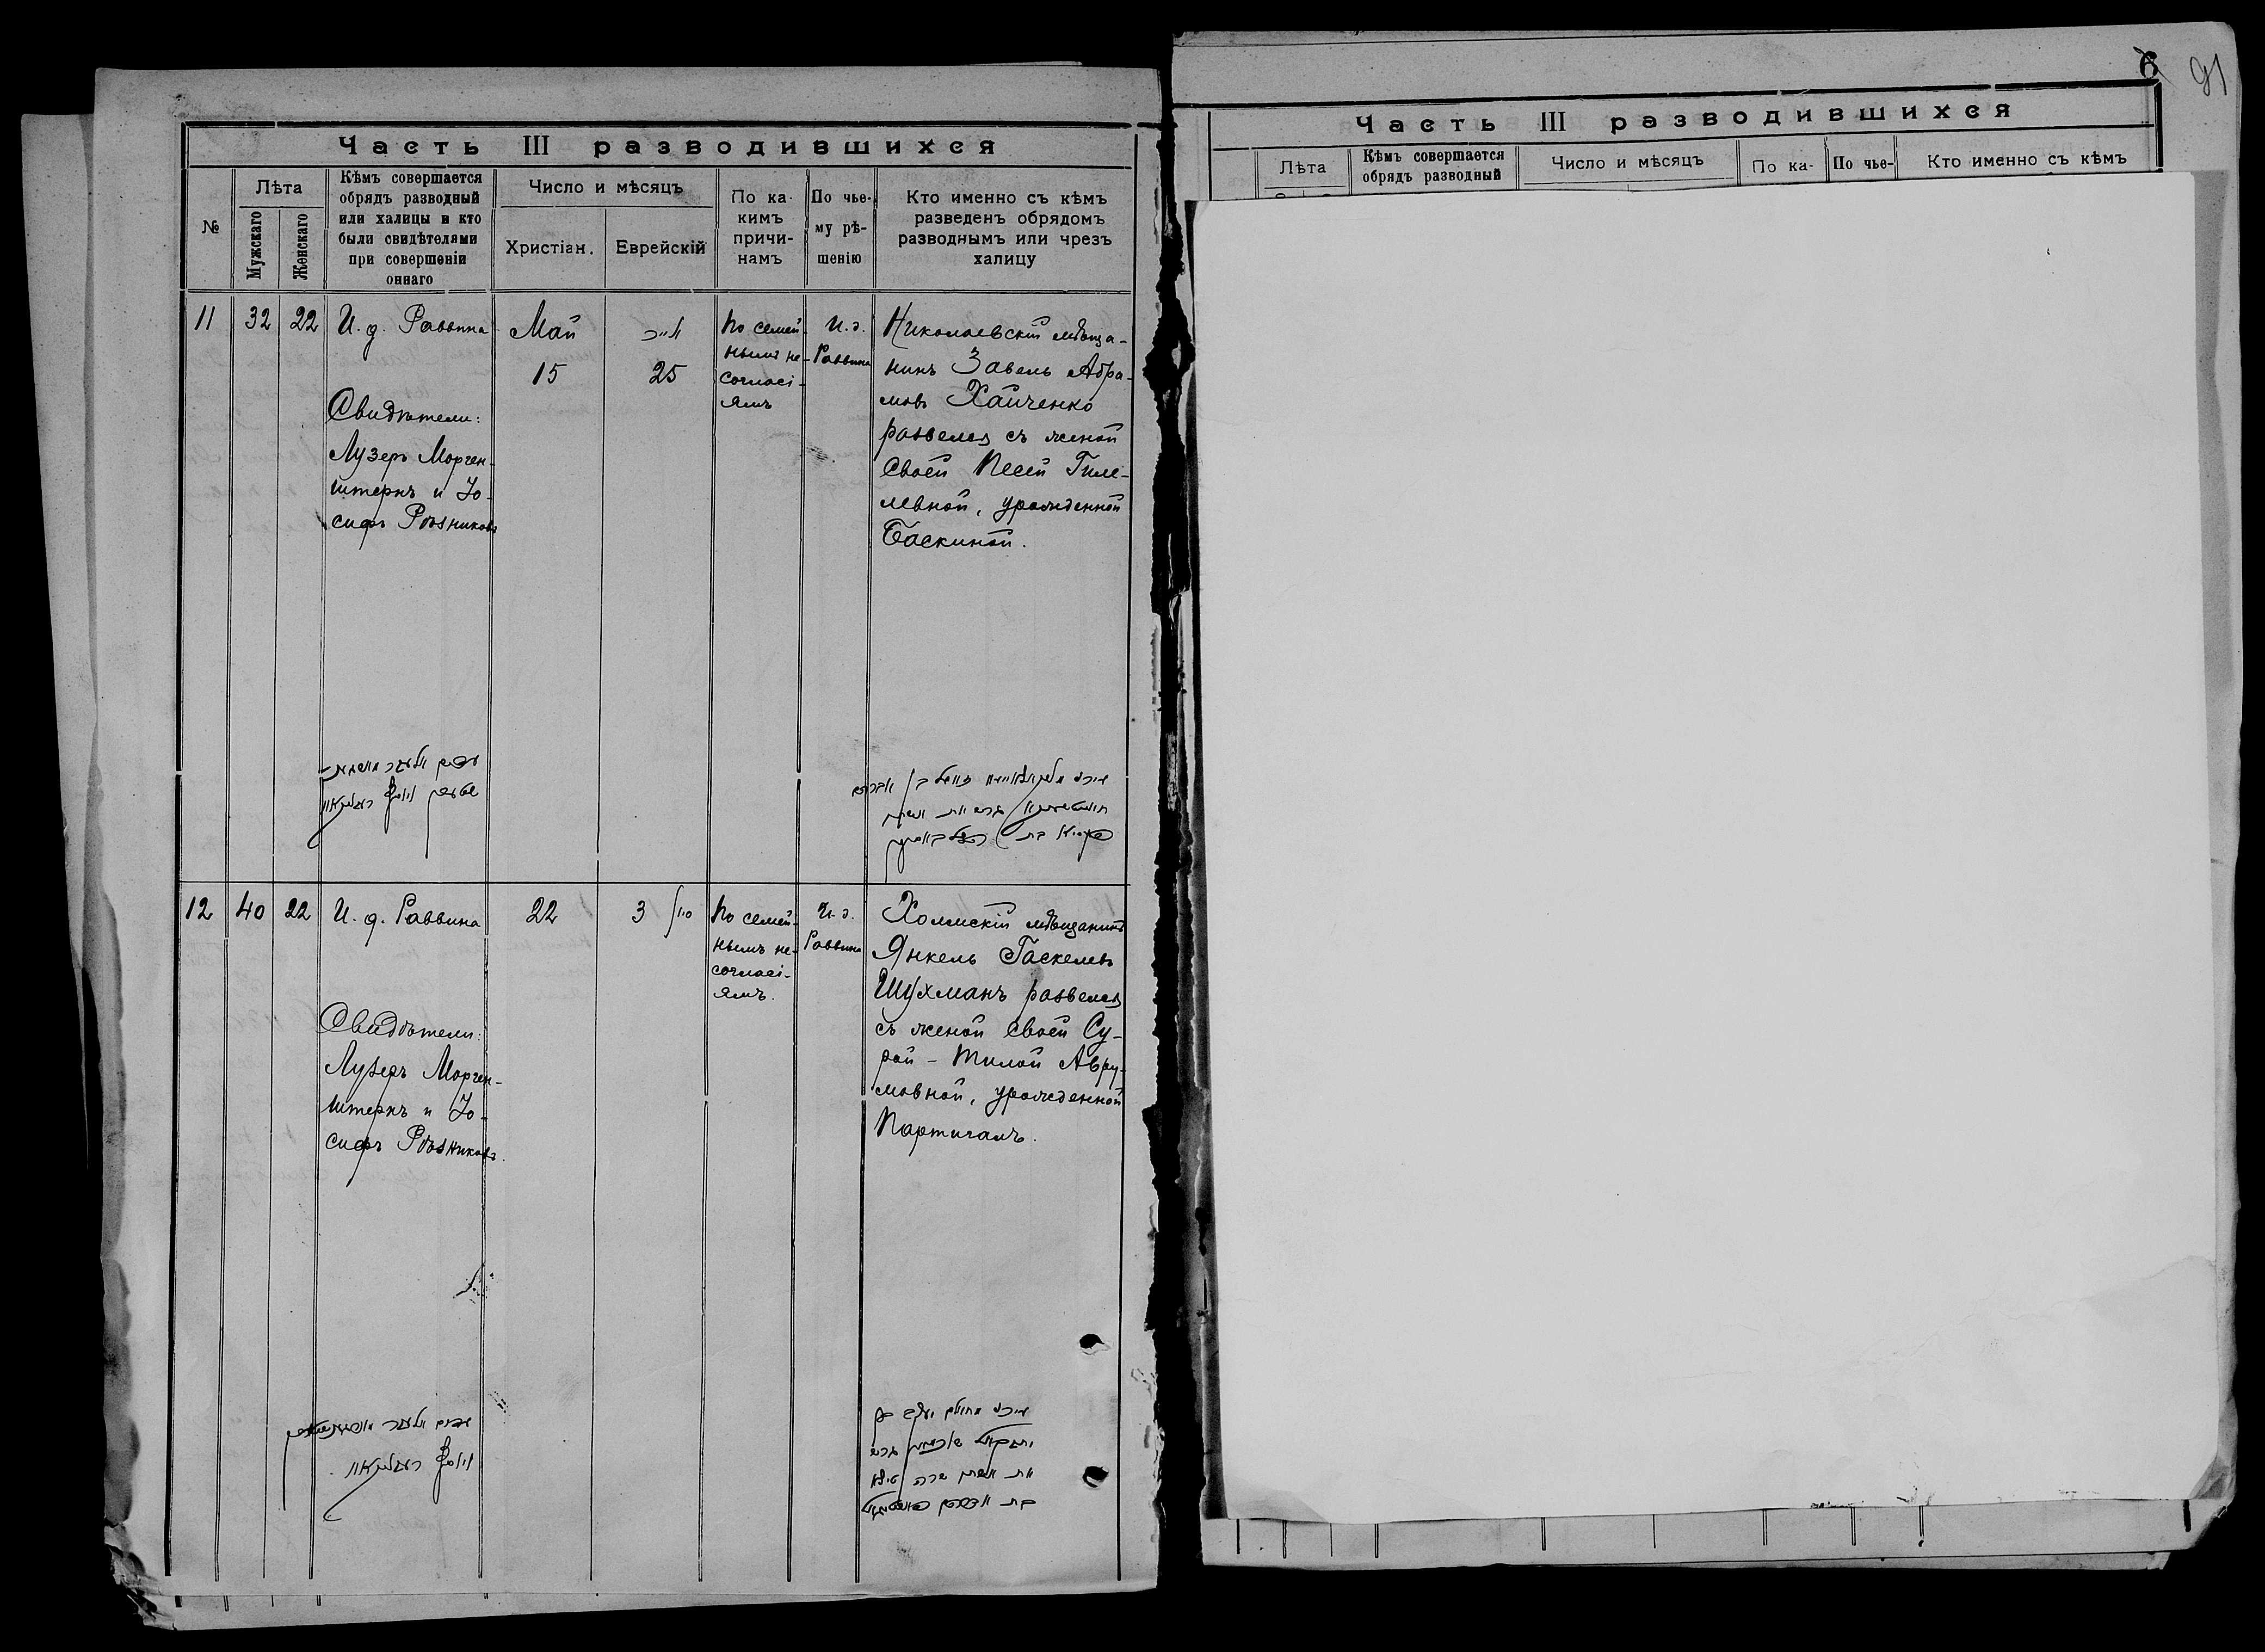 Часть III разводившихся
№
Лѣта
Мужскаго
Женскаго
Кѣмъ совершается
обрядъ разводный
или халицы и кто
были свидѣтелями
при совершеніи
оннаго
Число и мѣсяцъ
Христіан.
Еврейскій
По ка-
кимъ
причи-
намъ
По чье-
му рѣ-
шенію
Кто именно съ кѣмъ
разведенъ обрядомъ
разводнымъ или чрезъ
халицу
11
32
22
И. д. Раввина
Свидѣтели:
Лузеръ Морген-
штернъ и Іо-
сифъ Рѣзниковъ
Май
15
אייר
25
По семей-
нымъ не-
согласі-
ямъ
И. д.
Раввина
Николаевскій мѣща-
нинъ Завель Абра-
мовъ Хайченко
развелся съ женой
своей Песей Гиле-
левной, урожденной
Баскиной.
12
40
22
И. д. Раввина
Свидѣтели:
Лузеръ Морген-
штернъ и Іо-
сифъ Рѣзниковъ.
22
3 סיון
По семей-
нымъ не-
согласі-
ямъ.
И. д.
Раввина
Холмскій мѣщанинъ
Янкель Гаскелевъ
Шухманъ развелся
съ женой своей Су-
рой - Тилой Авру-
мовной, урожденной
Партигалъ.
6
91
Часть III разводившихся
Лѣта
Кѣмъ совершается
обрядъ разводный
Число и мѣсяцъ
По ка-
По чье-
Кто именно съ кѣмъ